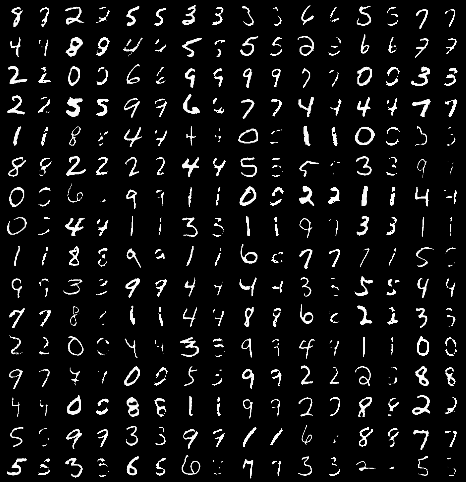 8 2 2 5 5 3 3 3 3 6 6 5 5 7 7
4 4 8 8 4 4 5 5 5 5 2 6 6 7 7
2 2 0 0 6 6 9 9 9 9 7 7 0 0 3 3
2 2 5 5 9 9 6 7 7 4 4 4 4 7 7
1 1 8 8 4 4 4 0 1 1 0 0 3 3
8 8 2 2 2 2 4 4 5 5 5 3 3 9
0 0 6 9 9 1 1 0 0 2 2 1 1 4 4
0 0 4 4 1 1 3 3 1 1 9 3 3 1 1
1 1 8 8 9 9 1 1 6 7 7 7 1 5 5
9 9 3 3 9 9 4 4 4 4 3 3 5 5 4 4
7 7 8 1 1 4 4 8 8 6 2 2 3 3
2 2 0 0 4 4 3 3 9 9 4 4 1 1 0 0
9 7 7 0 0 5 5 9 9 2 2 2 8 8
4 4 0 0 8 8 1 1 9 9 2 8 8 2 2
5 5 9 9 3 3 9 9 1 1 6 8 8 7 7
5 5 3 3 6 5 6 7 7 3 3 2 5 5